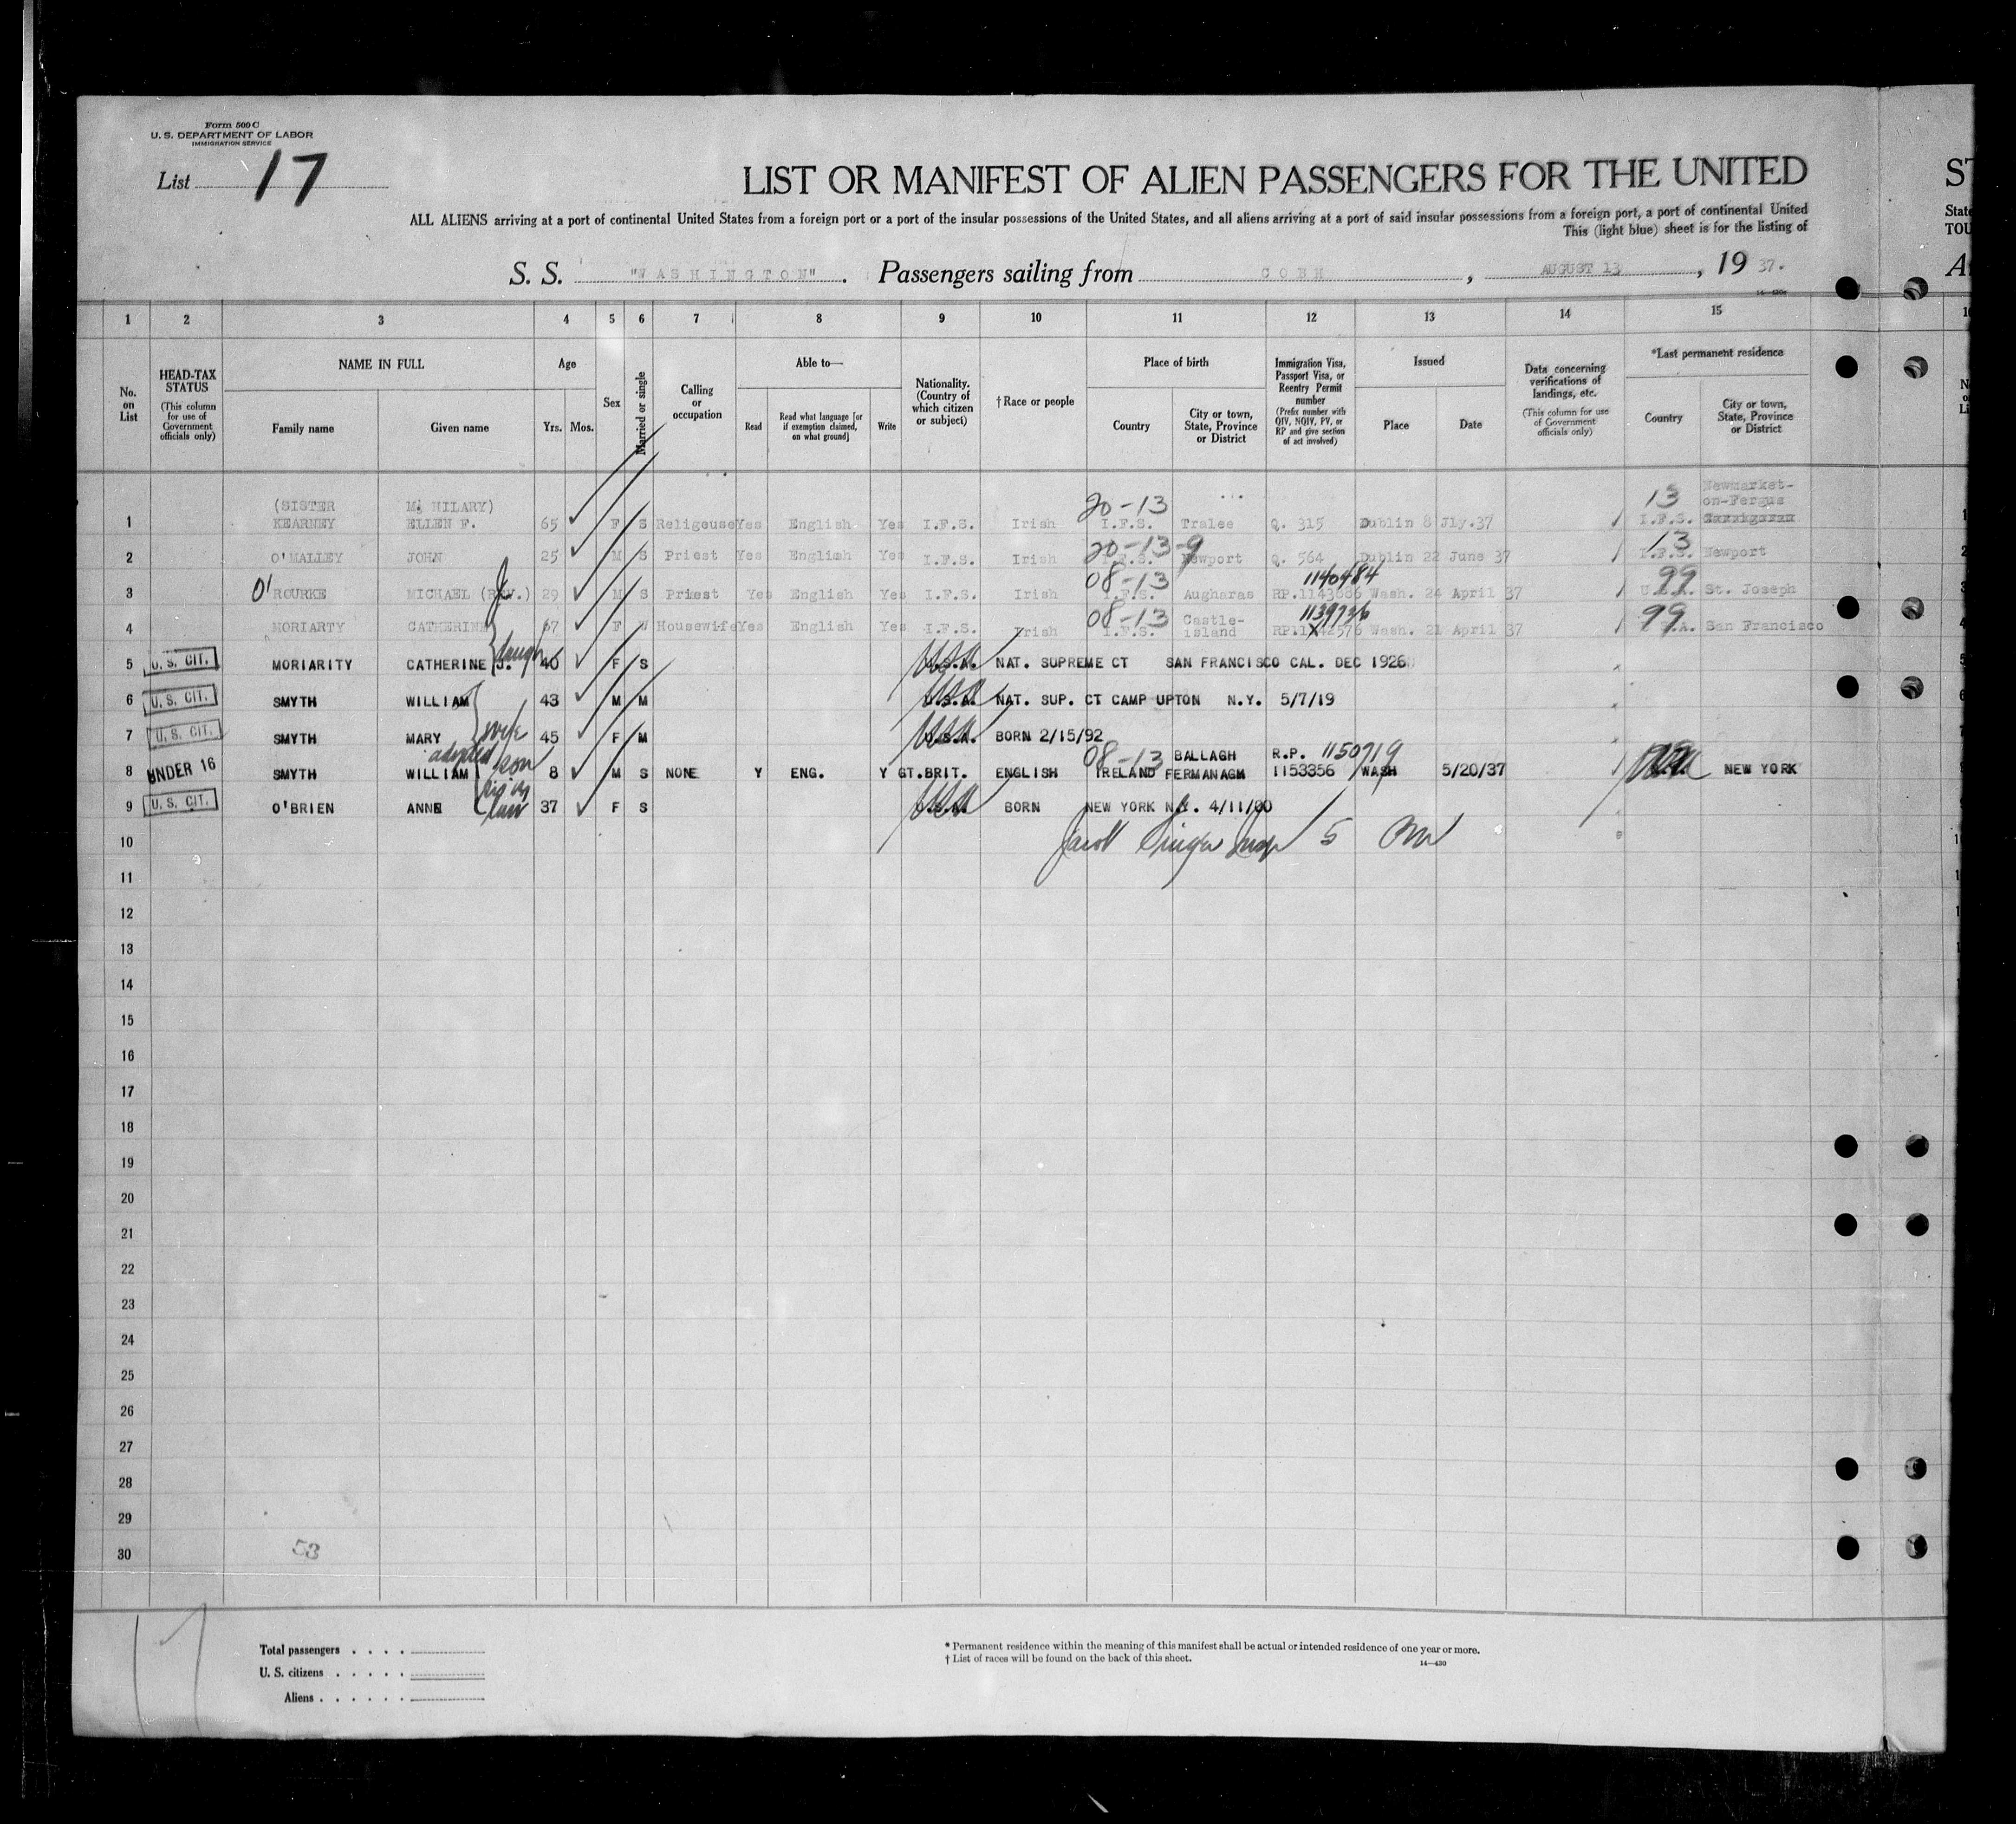 Form 500 C
U. S. DEPARTMENT OF LABOR
IMMIGRATION SERVICE
List 17
LIST OR MANIFEST OF ALIEN PASSENGERS FOR THE UNITED
ST
ALL ALIENS arriving at a port of continental United States from a foreign port or a port of the insular possessions of the United States, and all aliens arriving at a port of said insular possessions from a foreign port, a port of continental United
State
This (light blue) sheet is for the listing of
TOU
S. S. "WASHINGTON". Passengers sailing from COBH, AUGUST 13, 19 37.
1 2 3 4 5 6 7 8 9 10 11 12 13 14 15
No. on List
HEAD-TAX STATUS
(This column for use of Government officials only)
NAME IN FULL
Family name
Given name
Age
Yrs. Mos.
Sex
Married or single
Calling or occupation
Able to—
Read
Read what language [or if exemption claimed, on what ground]
Write
Nationality. (Country of which citizen or subject)
†Race or people
Place of birth
Country
City or town, State, Province or District
Immigration Visa, Passport Visa, or Reentry Permit number
(Prefix number with QIV, NQIV, PV, or RP and give section of act involved)
Issued
Place
Date
Data concerning verifications of landings, etc.
(This column for use of Government officials only)
*Last permanent residence
Country
City or town, State, Province or District
(SISTER M. HILARY) 20-13 13 Newmarket-on-Fergus
1 KEARNEY ELLEN F. 65 F S Religeuse Yes English Yes I.F.S. Irish I.F.S. Tralee Q. 315 Dublin 8 Jly.37 I.F.S.
20-13-9 13
2 O'MALLEY JOHN 25 M S Priest Yes English Yes I.F.S. Irish I.F.S. Newport Q. 564 Dublin 22 June 37 I.F.S. Newport
08-13 1140484 99
3 O'ROURKE MICHAEL (REV.) 29 M S Priest Yes English Yes I.F.S. Irish I.F.S. Augharas RP.1143686 Wash. 24 April 37 U.S.A. St. Joseph
08-13 1139736 99
4 MORIARTY CATHERINE 67 F W Housewife Yes English Yes I.F.S. Irish I.F.S. Castle-island RP1142576 Wash. 21 April 37 U.S.A. San Francisco
5 U. S. CIT. MORIARITY CATHERINE J. daugh 40 F S U.S.A. NAT. SUPREME CT SAN FRANCISCO CAL. DEC 1926
6 U. S. CIT. SMYTH WILLIAM 43 M M U.S.A. NAT. SUP. CT CAMP UPTON N.Y. 5/7/19
7 U. S. CIT. SMYTH MARY wife 45 F M U.S.A. BORN 2/15/92
adopted son 08-13 BALLAGH R.P. 1150719
8 UNDER 16 SMYTH WILLIAM 8 M S NONE Y ENG. Y GT.BRIT. ENGLISH IRELAND FERMANAGH 1153356 WASH 5/20/37 NEW YORK
9 U. S. CIT. O'BRIEN ANNE sis in law 37 F S U.S.A. BORN NEW YORK N.Y. 4/11/00
10 Jacob Singer Insp 5
11
12
13
14
15
16
17
18
19
20
21
22
23
24
25
26
27
28
29
30
53
17
Total passengers . . . .
U. S. citizens . . . . .
Aliens . . . . . .
* Permanent residence within the meaning of this manifest shall be actual or intended residence of one year or more.
† List of races will be found on the back of this sheet.
14—430